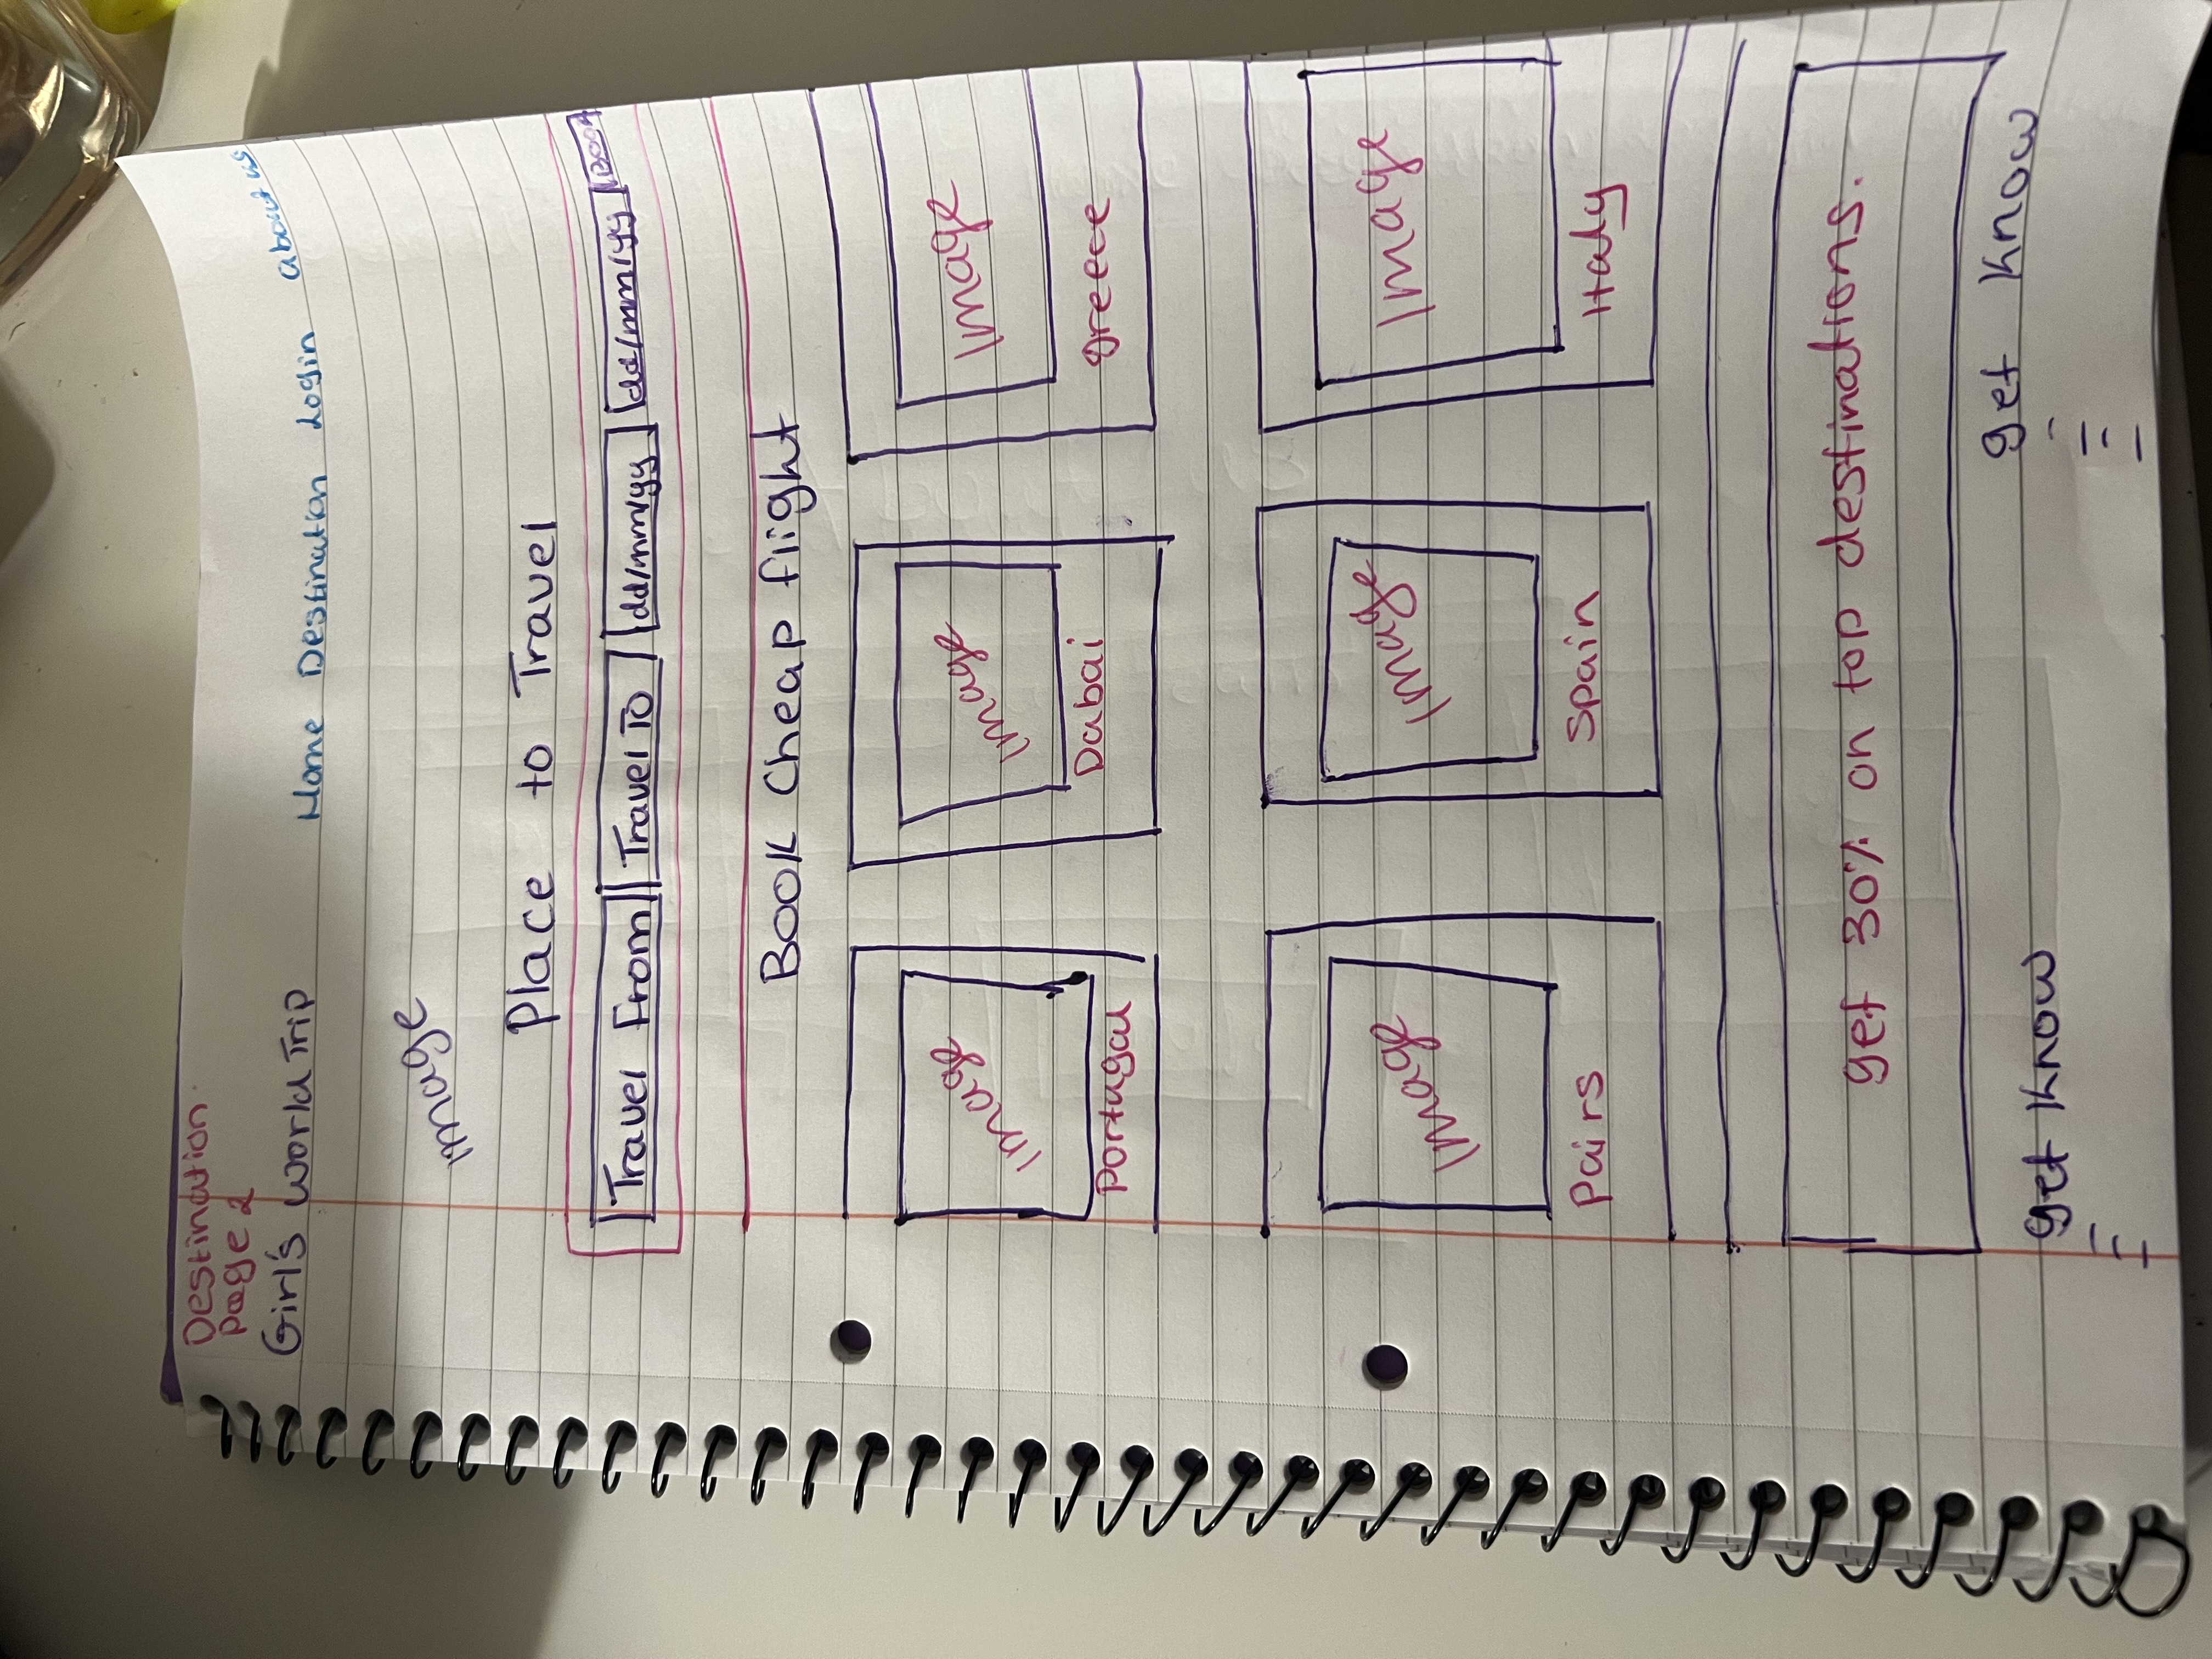 Destination
Page 2
Girl's World Trip
Home Destination Login about us
image
Place to Travel
Travel From Travel To dd/mm/yy dd/mm/yy Book
Book Cheap flight
image image image
Portugal Dabai greece
image image image
Pairs Spain Italy
get 30% on top destinations.
get know get know